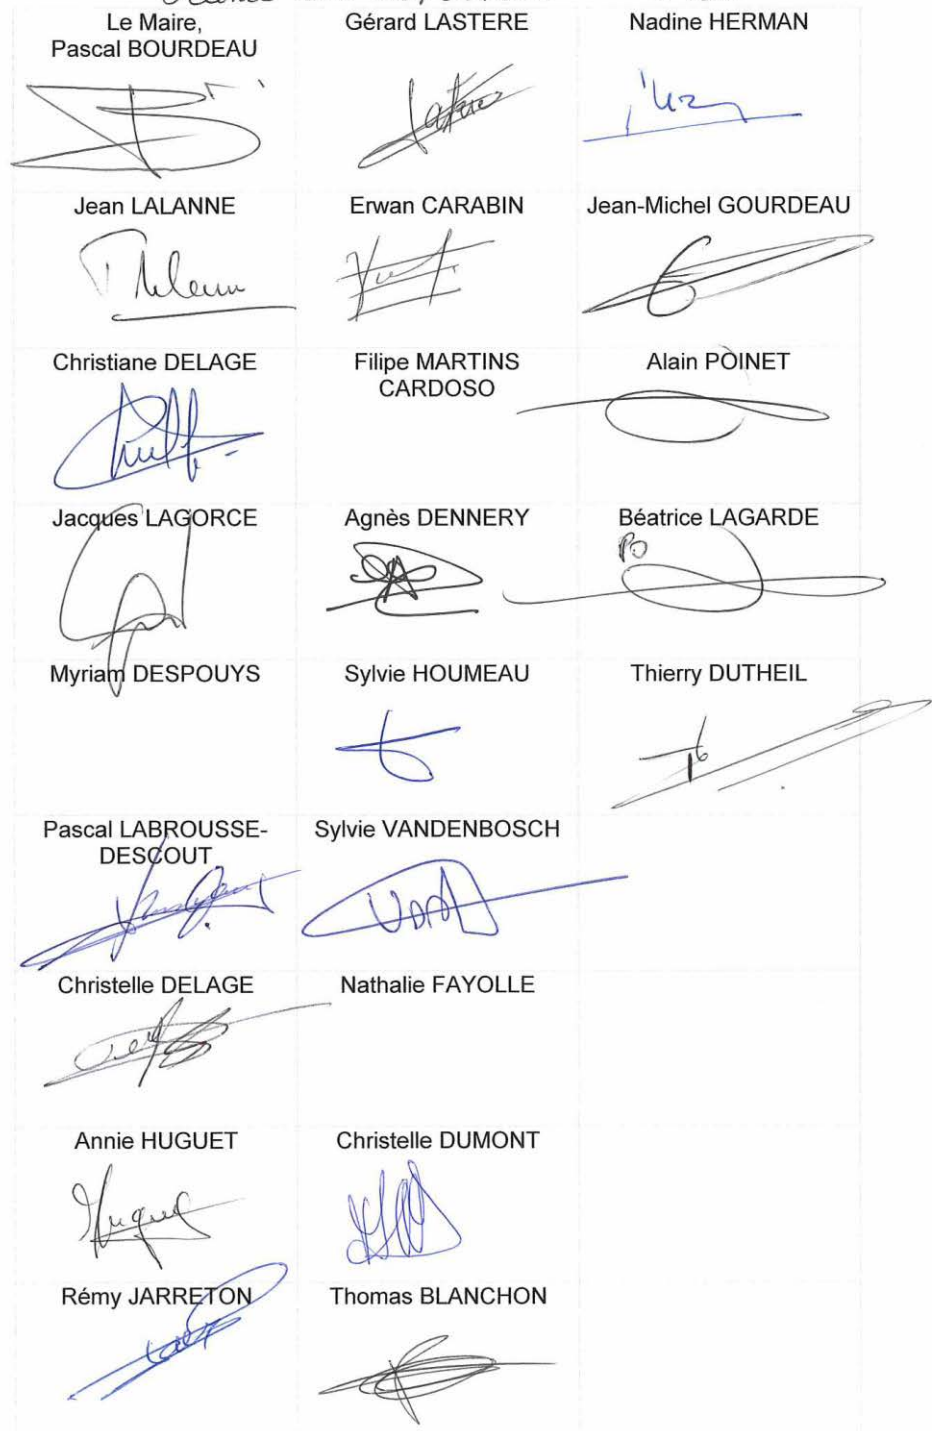 Le Maire,
Pascal BOURDEAU
Gérard LASTERE
Nadine HERMAN
Jean LALANNE
Erwan CARABIN
Jean-Michel GOURDEAU
Christiane DELAGE
Filipe MARTINS
CARDOSO
Alain POINET
Jacques LAGORCE
Agnès DENNERY
Béatrice LAGARDE
PO
Myriam DESPOUYS
Sylvie HOUMEAU
Thierry DUTHEIL
Pascal LABROUSSE-
DESCOUT
Sylvie VANDENBOSCH
Christelle DELAGE
Nathalie FAYOLLE
Annie HUGUET
Christelle DUMONT
Huguet
Rémy JARRETON
Thomas BLANCHON